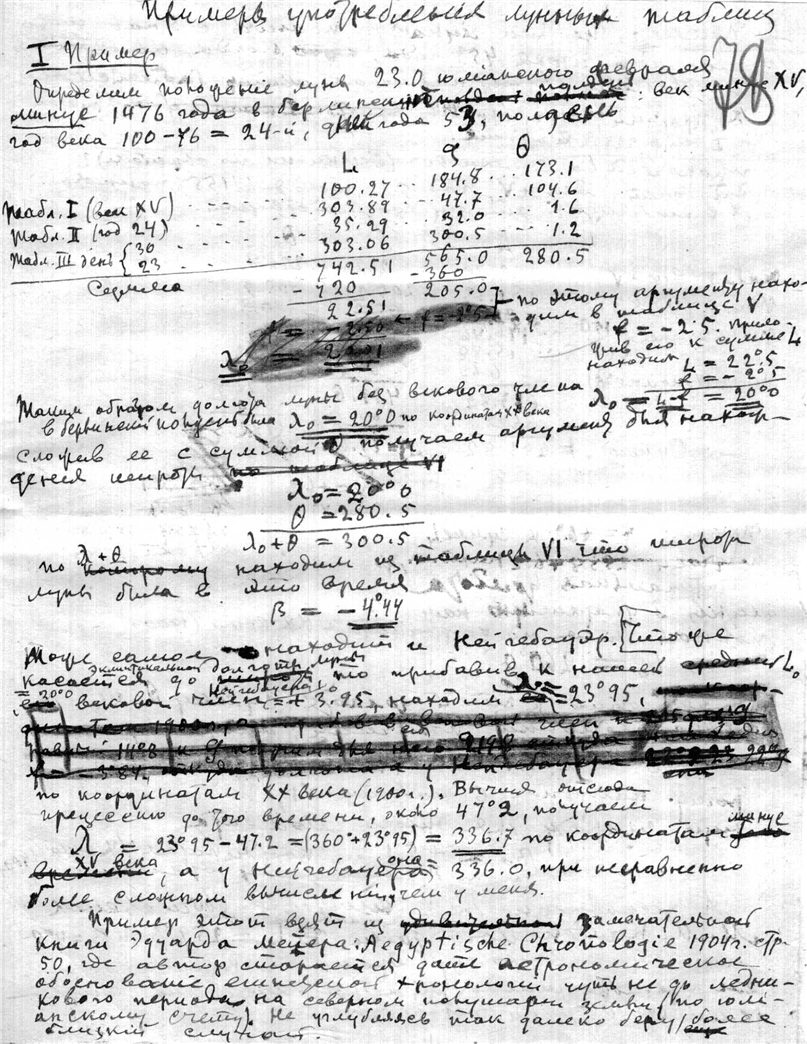 Примеры употребления лунных таблиц
78
I Пример
Определим положение луны 23.0 юлианского февраля
минус 1476 года в берлинский полдень: век минус XV,
год века 100-76 = 24-й, дни года 53, полдень
L ς θ
100.27 184.8 173.1
Табл. I (век XV) 303.89 47.7 104.6
Табл. II (год 24) 35.29 32.0 1.6
Табл. III дни { 30 23 303.06 300.5 1.2
Сумма 742.51 565.0 280.5
-720 -360
22.51 205.0 } по этому аргументу нахо-
дим в таблице V
f = -2.5. Прило-
жив его к сумме L
находим L = 22°5
f = -2°5
λ₀ = L-f = 20°0
Таким образом долгота луны без векового члена
в берлинский полдень была λ₀ = 20°0 по координатам XX века
Сложив ее с суммой θ получаем аргумент для нахож-
дения широты
λ₀ = 20°0
θ = 280.5
λ₀ + θ = 300.5
по λ + θ находим из таблицы VI что широта
луны была в это время
β = - 4°44
Тоже самое находит и Нейгебауэр. Что же
касается до эклиптикальной долготы луны то прибавив к нашей L₀
= 20°0 вековой член Нейгебауера = + 3.95 находим λ = 23°95,
по координатам XX века (1900г.). Вычтя отсюда
прецессию до того времени, около 47°2, получаем
λ = 23°95 - 47.2 = (360°+23°95) = 336.7 по координатам минус
XV века, а у Нейгебауера она = 336.0, при несравненно
более сложном вычислении, чем у меня.
Пример этот взят из замечательной
книги Эдуарда Мейера: Aegyptische Chronologie 1904г. стр.
50, где автор старается дать астрономическое
обоснование египетской хронологии чуть не до ледни-
кового периода на северном полушарии земли (по юли-
анскому счету). Не углубляясь так далеко беру более
близкий случай.